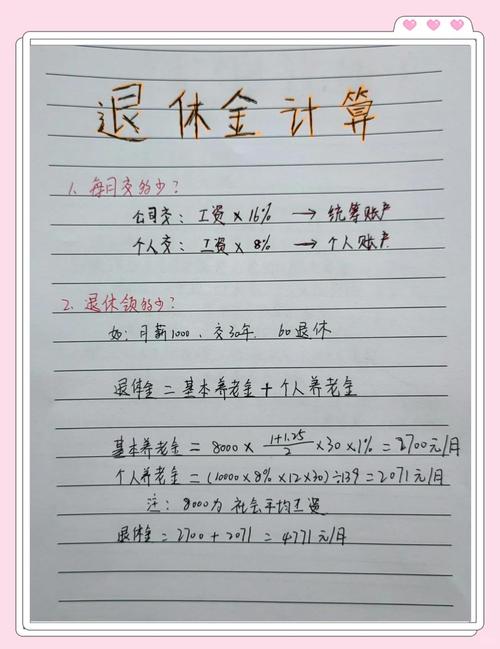 退休金计算
1. 每月交多少?
公司交: 工资×16% → 统筹账户
个人交: 工资×8% → 个人账户
2. 退休领多少?
如: 月薪1000、交30年、60退休
退休金=基本养老金+个人养老金
基本养老金=8000×(1+1.25)/2×30×1%=2700元/月
个人养老金=(10000×8%×12×30)÷139=2071元/月
注: 8000为社会平均工资
退休金=2700+2071=4771元/月